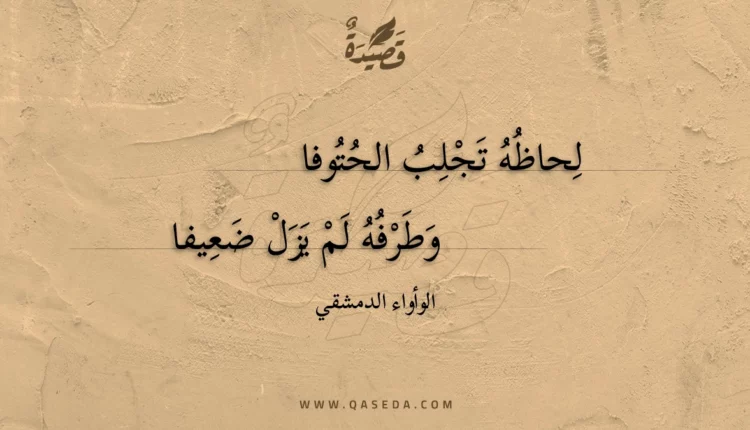 قَصِيدَةٌ
لِحاظُهُ تَجْلِبُ الحُتُوفا
وَطَرْفُهُ لَمْ يَزَلْ ضَعِيفا
الوأواء الدمشقي
WWW.QASEDA.COM